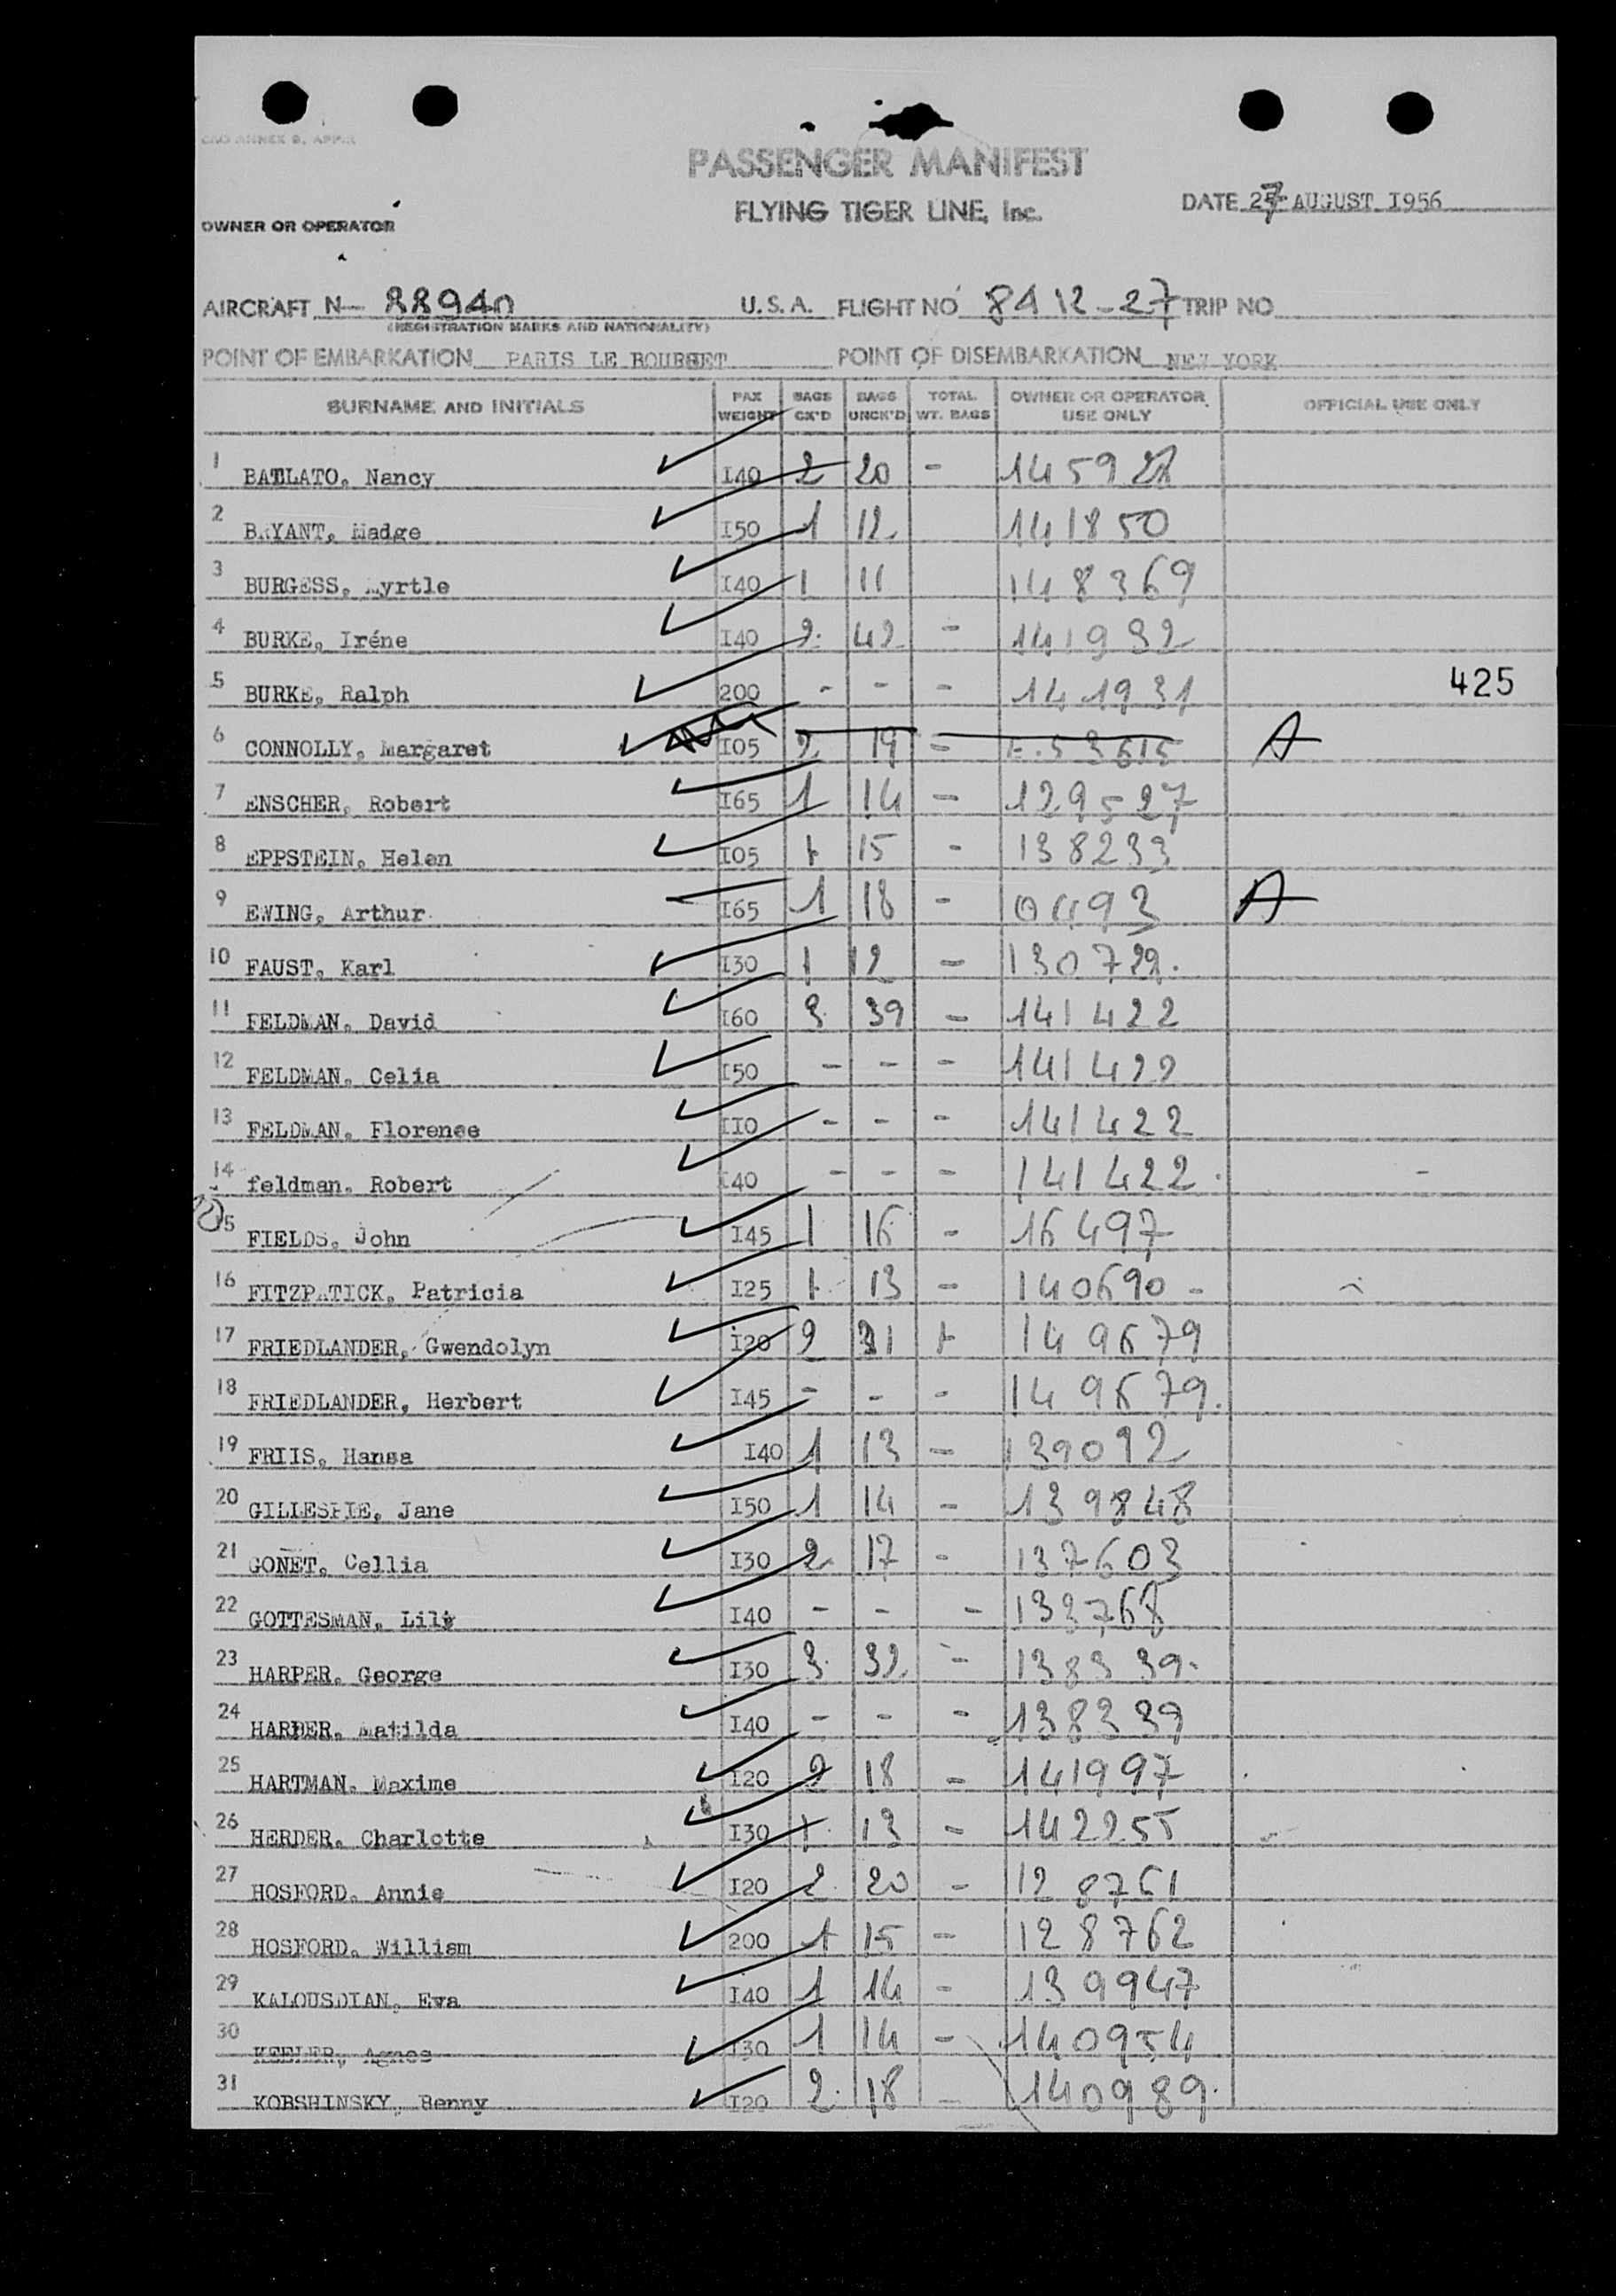 PASSENGER MANIFEST
FLYING TIGER LINE, Inc.
DATE 27 AUGUST I956
OWNER OR OPERATOR
AIRCRAFT N- 88940 U.S.A. FLIGHT NO 8412-27 TRIP NO
(REGISTRATION MARKS AND NATIONALITY)
POINT OF EMBARKATION PARIS LE BOURGET POINT OF DISEMBARKATION NEW YORK
SURNAME AND INITIALS PAX WEIGHT BAGS CK'D BAGS UNCK'D TOTAL WT. BAGS OWNER OR OPERATOR USE ONLY OFFICIAL USE ONLY
1 BATLATO, Nancy I40 2 20 -
2 BRYANT, Madge I50 1 12 141850
3 BURGESS, Myrtle I40 1 11 148369
4 BURKE, Iréne I40 2 42 - 141932
5 BURKE, Ralph 200 - - - 141931 425
6 CONNOLLY, Margaret I05 2 19 - A
7 ENSCHER, Robert I65 1 14 - 129527
8 EPPSTEIN, Helen I05 1 15 - 138233
9 EWING, Arthur I65 1 18 - 0493 A
10 FAUST, Karl I30 1 12 - 130729.
11 FELDMAN, David I60 3 39 - 141422
12 FELDMAN, Celia I50 - - - 141422
13 FELDMAN, Florense II0 - - - 141422
14 feldman, Robert I40 - - - 141422
15 FIELDS, John I45 1 16 - 16497
16 FITZPATICK, Patricia I25 1 13 - 140690
17 FRIEDLANDER, Gwendolyn I20 2 31 149679
18 FRIEDLANDER, Herbert I45 - - - 149679.
19 FRIIS, Hansa I40 1 13 - 139092
20 GILLESPIE, Jane I50 1 14 - 139848
21 GONET, Cellia I30 2 17 - 137603
22 GOTTESMAN, Lily I40 - - - 133768
23 HARPER, George I30 3 32 - 138339
24 HARPER, Matilda I40 - - - 138339
25 HARTMAN, Maxime I20 2 18 - 141997
26 HERDER, Charlotte I30 1 13 - 142255
27 HOSFORD, Annie I20 2 20 - 128761
28 HOSFORD, William 200 1 15 - 128762
29 KALOUSDIAN, Eva I40 1 14 - 139947
30 KEELER, Agnes I30 1 14 - 140954
31 KOBSHINSKY, Benny I20 2 18 - 140989.